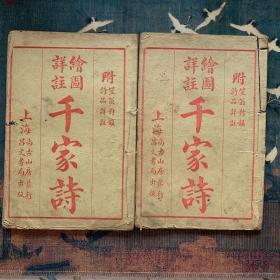 附
笠翁對韻
詩品詳註
繪圖
詳註
千家詩
上海
尚古山房發行
昌文書局出版
附
笠翁對韻
詩品詳註
繪圖
詳註
千家詩
上海
尚古山房發行
昌文書局出版